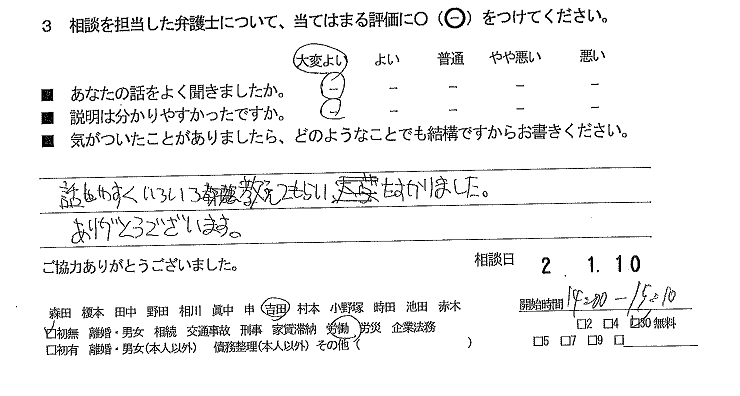 3 相談を担当した弁護士について、当てはまる評価に〇（㊀）をつけてください。
大変よい よい 普通 やや悪い 悪い
■ あなたの話をよく聞きましたか。 － － － － －
■ 説明は分かりやすかったですか。 － － － － －
■ 気がついたことがありましたら、どのようなことでも結構ですからお書きください。
話しやすく いろいろ 教えてもらい、たすかりました。
ありがとうございます。
ご協力ありがとうございました。 相談日 2 . 1. 10
森田 榎本 田中 野田 相川 眞中 申 吉田 村本 小野塚 時田 池田 赤木 開始時間 14:00 － 15:10
□初無 離婚・男女 相続 交通事故 刑事 家賃滞納 労働 労災 企業法務 □2 □4 □30 無料
□初有 離婚・男女(本人以外) 債務整理(本人以外) その他( ) □5 □7 □9 □